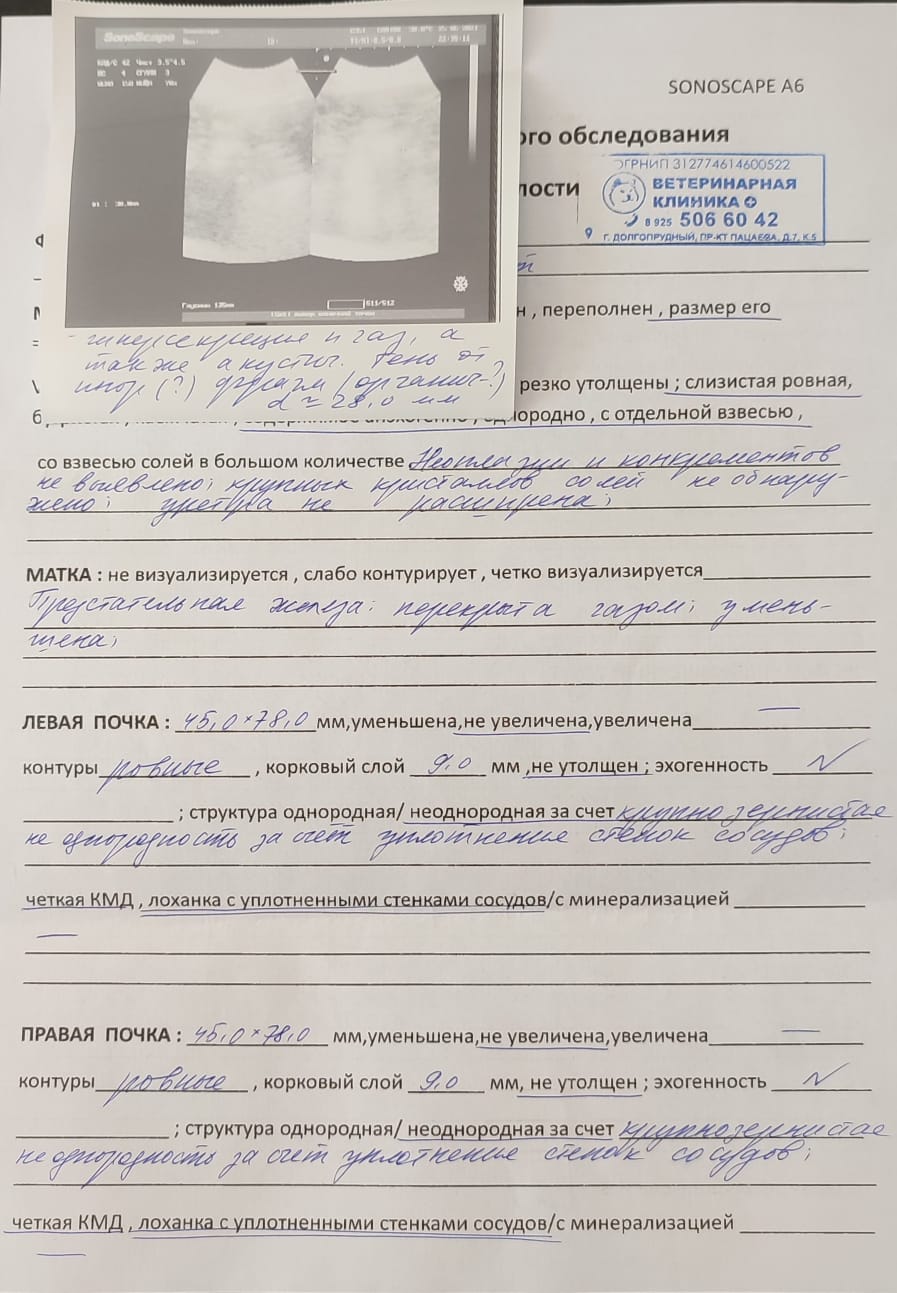 SonoScape
SONOSCAPE A6
ого обследования
лости
ОГРНИП 312774614600522
ВЕТЕРИНАРНАЯ
КЛИНИКА
8 925 506 60 42
Г. ДОЛГОПРУДНЫЙ, ПР-КТ ПАЦАЕВА, Д.7, К.5
Глубина 135мм
511/512
н , переполнен , размер его
гиперсекреция и газ, а
также акустич. тень от
инор (?) фрагм (органич-?)
d ≈ 28,0 мм
резко утолщены ; слизистая ровная,
однородно , с отдельной взвесью ,
со взвесью солей в большом количестве Неоплазии и конкрементов
не выявлено; крупных кристаллов солей не обнару-
жено; уретра не расширена;
МАТКА : не визуализируется , слабо контурирует , четко визуализируется
Предстательная железа: перекрыта газом; умень-
шена;
ЛЕВАЯ ПОЧКА : 45,0 × 78,0 мм,уменьшена,не увеличена,увеличена —
контуры ровные , корковый слой 9,0 мм ,не утолщен ; эхогенность N
; структура однородная/ неоднородная за счет крупнозернистая
неоднородность за счёт уплотнение стенок сосудов;
четкая КМД , лоханка с уплотненными стенками сосудов/с минерализацией
—
ПРАВАЯ ПОЧКА : 45,0 × 78,0 мм,уменьшена,не увеличена,увеличена —
контуры ровные , корковый слой 9,0 мм, не утолщен ; эхогенность N
; структура однородная/ неоднородная за счет крупнозернистая
неоднородность за счет уплотнение стенок сосудов;
четкая КМД , лоханка с уплотненными стенками сосудов/с минерализацией
—